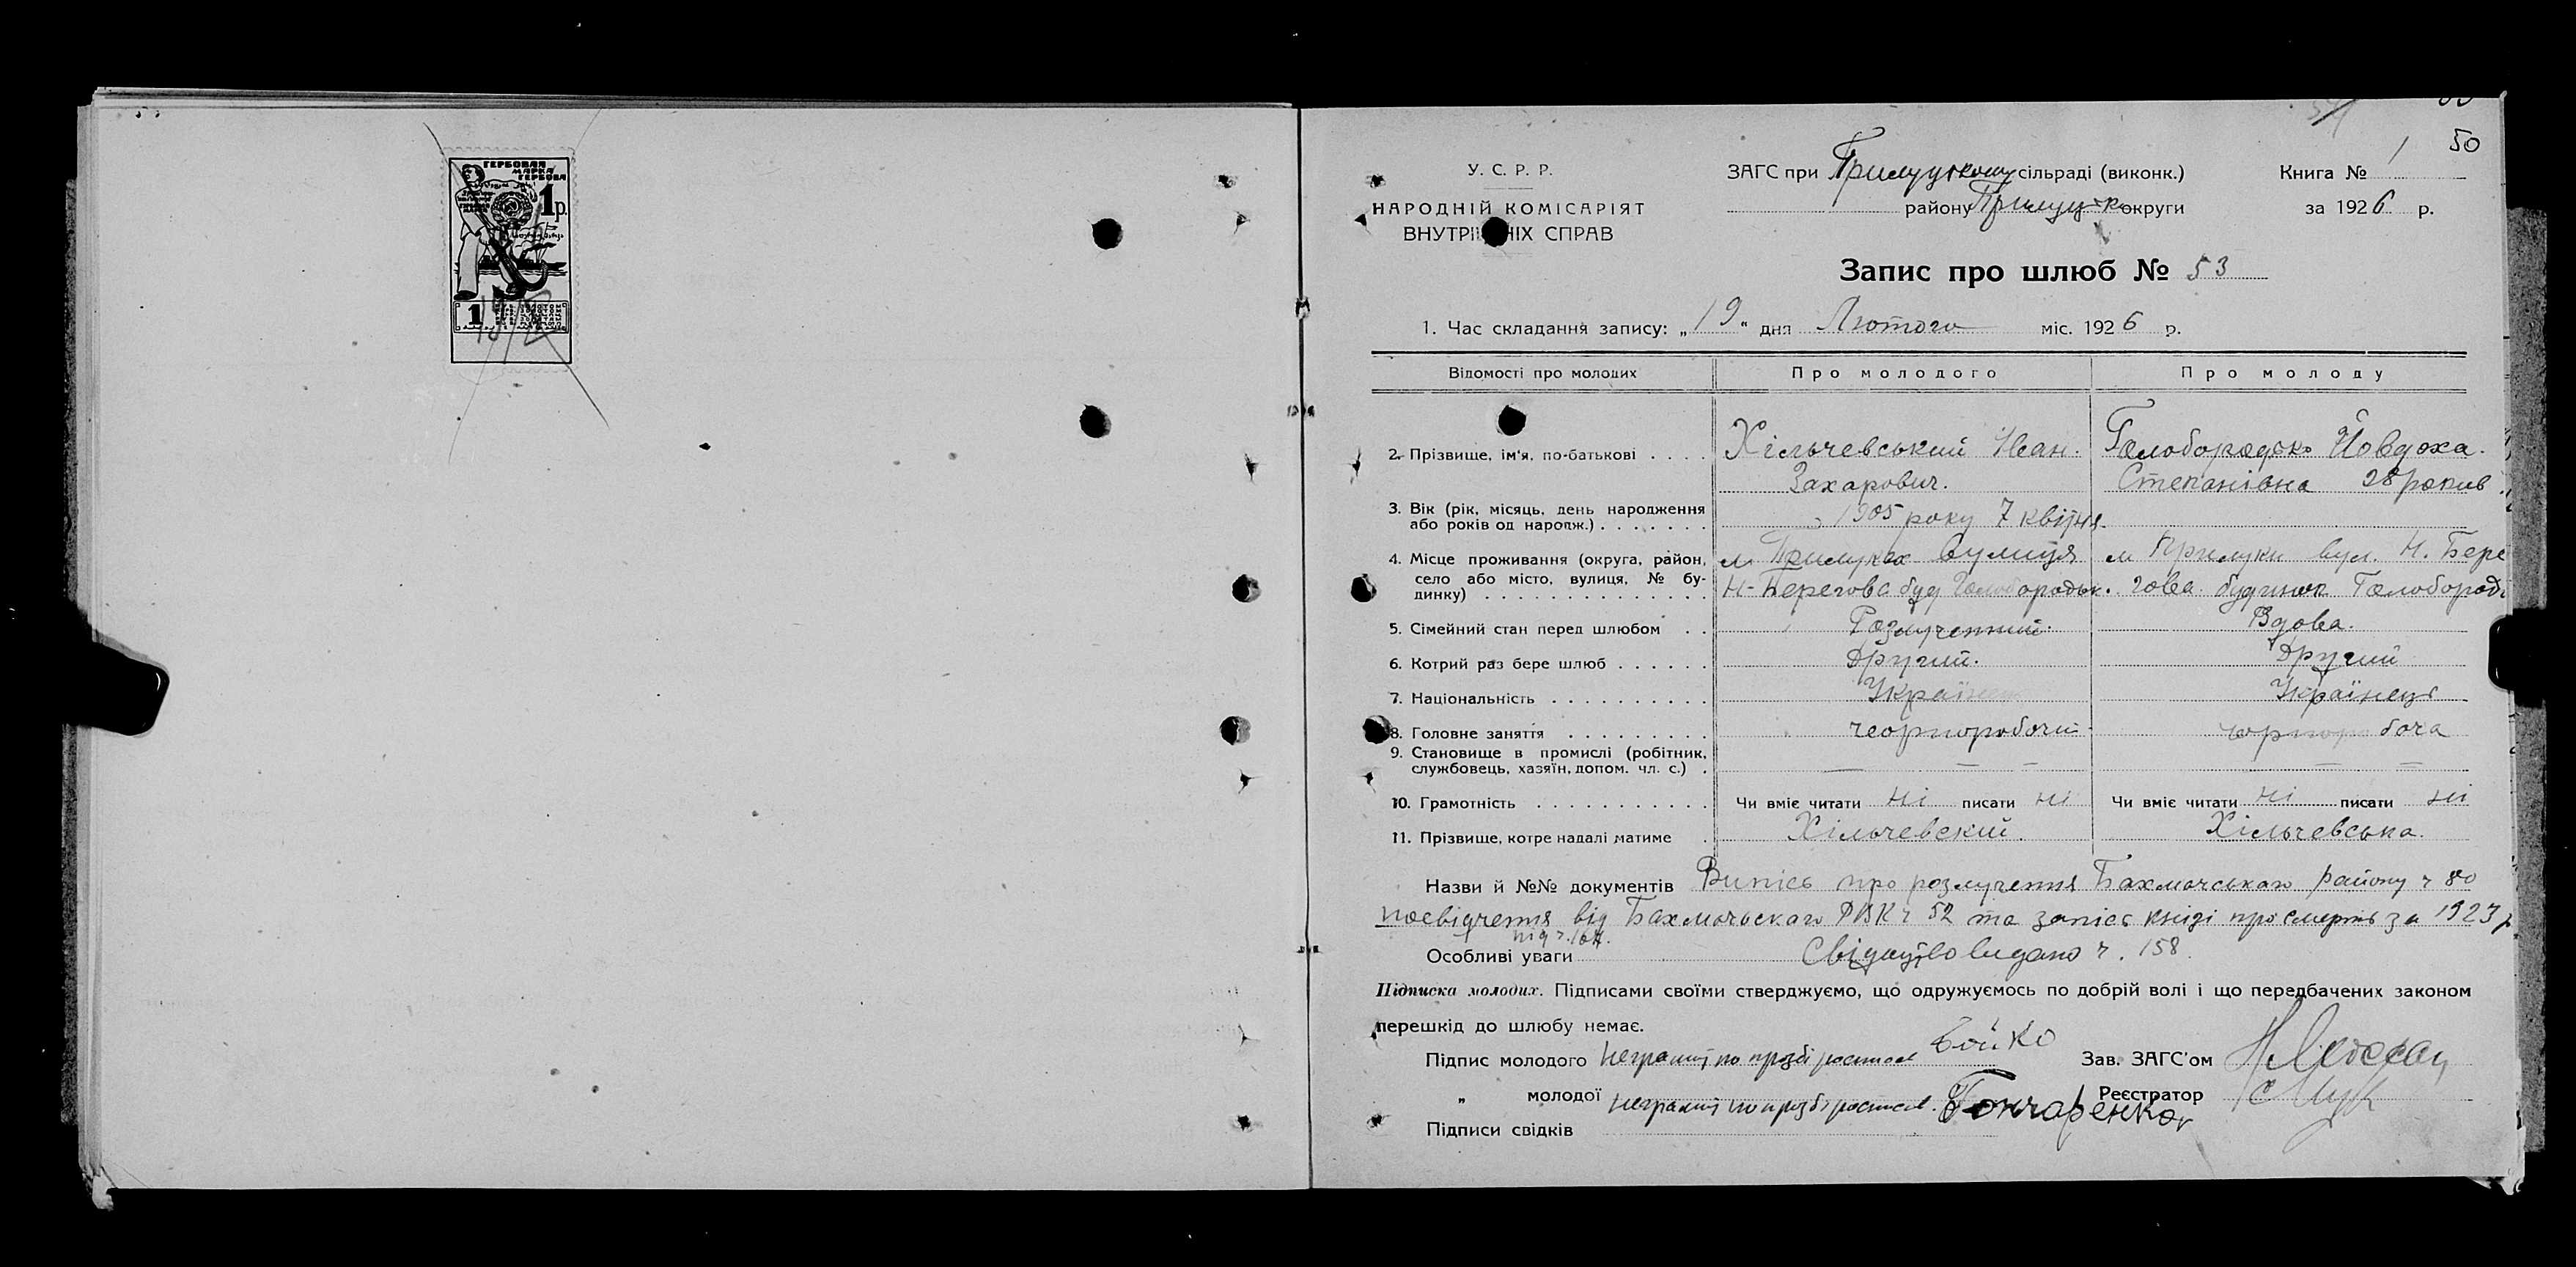 ГЕРБОВАЯ
МАРКА
ГЕРБОВА
1р.
1
50
У. С. Р. Р.
НАРОДНІЙ КОМІСАРІЯТ
ВНУТРІШНІХ СПРАВ
ЗАГС при Прилуцькому сільраді (виконк.)
району Прилуцьк округи
Книга № 1
за 1926 р.
Запис про шлюб № 53
1. Час складання запису: „19“ дня Лютого міс. 1926 р.
Відомості про молодих Про молодого Про молоду
2. Прізвище, ім'я, по-батькові . . . . Хільчевський Іван. Голобородько Йовдоха.
Захарович. Степанівна 28 рокив
3. Вік (рік, місяць, день народження
або років од народж.) . . . . . . . 1905 року 7 квітня.
4. Місце проживання (округа, район, м Прилуках вулиця м Прилуки вул. Н. Бере
село або місто, вулиця, № бу- Н-Берегова буд Голобородьк. гова. будинок Голобороді
динку) . . . . . . . . . . . . . .
5. Сімейний стан перед шлюбом . . Розлученний. Вдова.
6. Котрий раз бере шлюб . . . . . . Другий. Другий
7. Національність . . . . . . . . . . Українець Українець
8. Головне заняття . . . . . . . . . чеорноробочий чорноробоча
9. Становище в промислі (робітник,
службовець, хазяїн, допом. чл. с.) . — — — — — —
10. Грамотність . . . . . . . . . . . Чи вміє читати ні писати ні Чи вміє читати ні писати ні
11. Прізвище, котре надалі матиме . Хільчевский. Хільчевська.
Назви й №№ документів Випісь про розлучення Бахмачського району ч 80
посвідчення від Бахмачьскаго РВК ч 52 та запісь кнізі про смерть за 1923 р
під ч. 164.
Особливі уваги Свідоцтво видано ч. 158.
Підписка молодих. Підписами своїми стверджуємо, що одружуємось по добрій волі і що передбачених законом
перешкід до шлюбу немає.
Підпис молодого неграмот по прозбі росписал Бойко Зав. ЗАГС'ом
„ молодої неграмот по прозбі росписал. Гончаренко Реєстратор
Підписи свідків